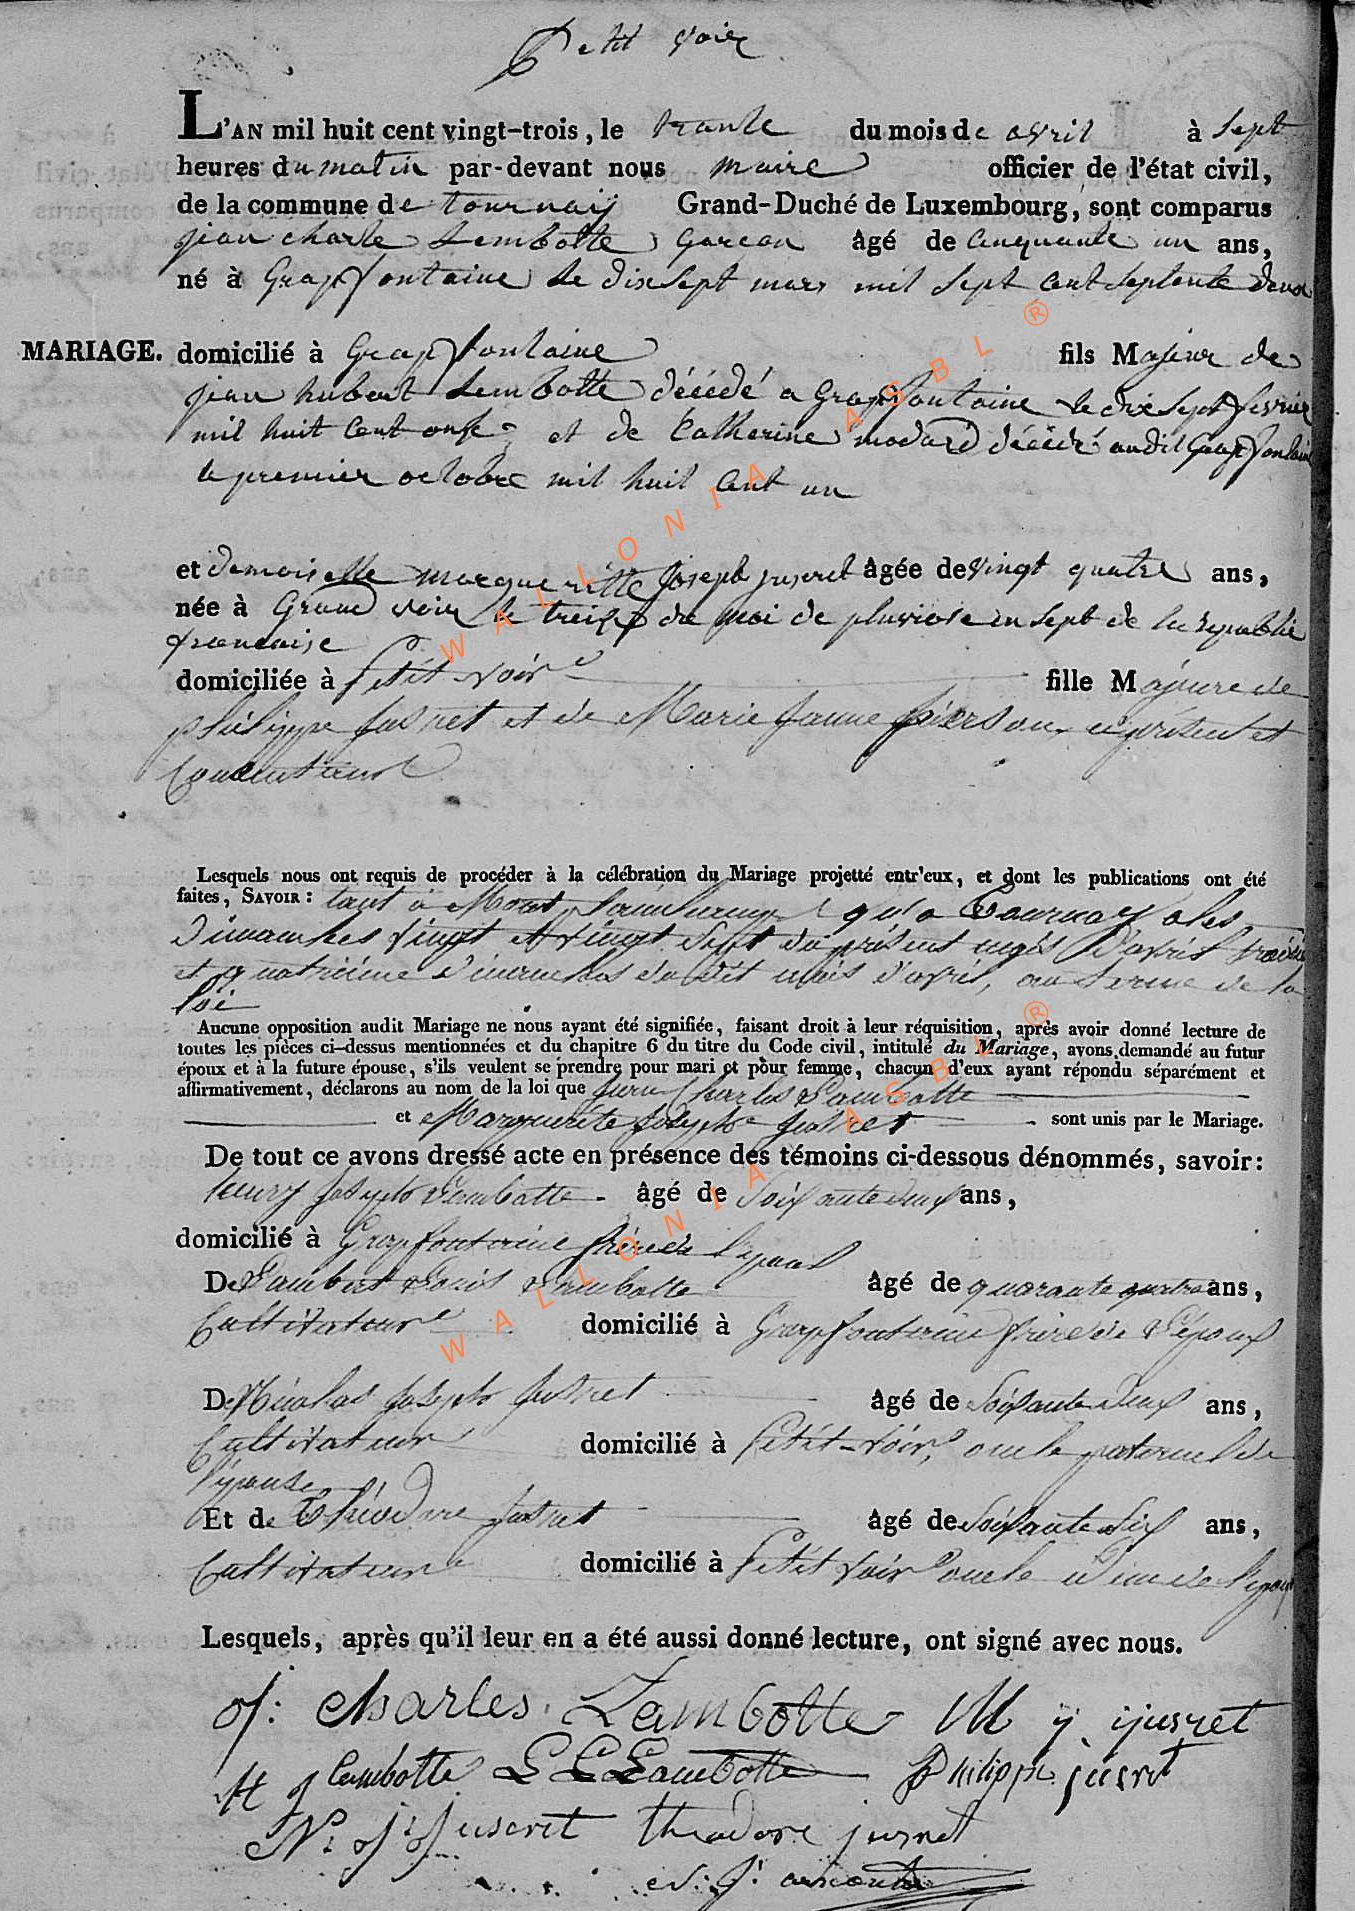 Petit voir
L'AN mil huit cent vingt-trois, le trante du mois de avril à sept
heures du matin par-devant nous maire officier de l'état civil,
de la commune de tournay Grand-Duché de Luxembourg, sont comparus
jean charle Lembotte garcon âgé de cinquante un ans,
né à Grapfontaine le dix sept mars mil sept cent septente deux
MARIAGE. domicilié à Grapfontaine fils Majeur de
jean hubert Lembotte décédé a Grapfontaine le dix sept fevrier
mil huit cent onse et de Catherine modard décédé audit Grapfontaine
le premier octobre mil huit cent un
et demoiselle margueritte joseph jusret âgée de vingt quatre ans,
née à Grand voir le treise du moi de pluviose en sept de la republic
francaise
domiciliée à Petit-voir fille Majeure de
philippe Jusret et de Marie Jeanne pierson, ci présent et
Consentant
Lesquels nous ont requis de procéder à la célébration du Mariage projetté entr'eux, et dont les publications ont été
faites, SAVOIR : tant à qu'a Tournay les
Dimanches vingt et vingt sept du présent mois d'avril troisieme
et quatrieme dimanches dudit mois d'avril, au terme de la
loi
Aucune opposition audit Mariage ne nous ayant été signifiée, faisant droit à leur réquisition, après avoir donné lecture de
toutes les pièces ci-dessus mentionnées et du chapitre 6 du titre du Code civil, intitulé du Mariage, avons demandé au futur
époux et à la future épouse, s'ils veulent se prendre pour mari et pour femme, chacun d'eux ayant répondu séparément et
affirmativement, déclarons au nom de la loi que Jean Charles Lambotte
et Marguerite Joseph Jusret sont unis par le Mariage.
De tout ce avons dressé acte en présence des témoins ci-dessous dénommés, savoir:
henry Joseph Lambotte âgé de Soixante deux ans,
domicilié à Grapfontaine frère de l'epoux
De Lambert Louis Lambotte âgé de quarante quatre ans,
Cultivateur domicilié à Grapfontaine frère de l'époux
De Nicolas Joseph Jusret âgé de Soixante deux ans,
Cultivateur domicilié à Petit-Voir, oncle paternel de
l'épouse
Et de Théodore Jusret âgé de Soixante Six ans,
Cultivateur domicilié à Petit Voir oncle
Lesquels, après qu'il leur en a été aussi donné lecture, ont signé avec nous.
J: charles Lambotte M j jusret
H J Lambotte L L Lambotte Philippe jusret
N: J: Juseret theodore jusret
WALLONIA ASBL ®
WALLONIA ASBL ®